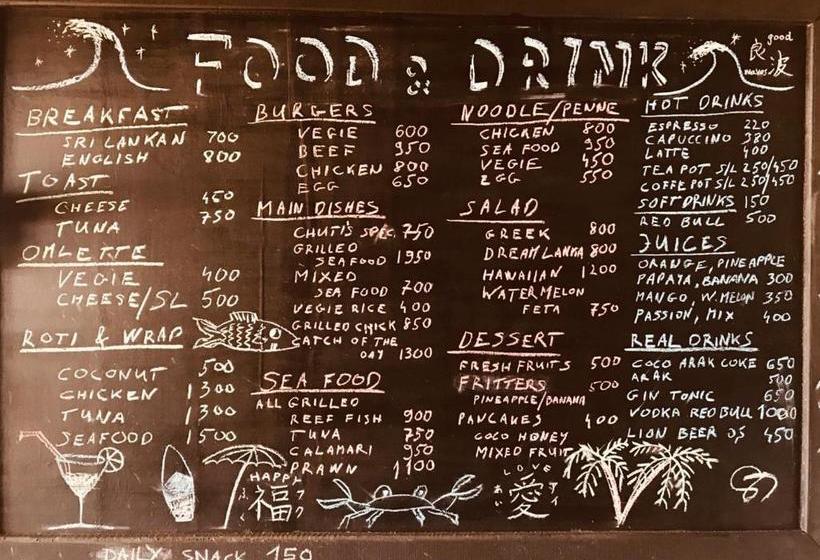 FOOD & DRINK
good
良
waves
波
BREAKFAST
SRI LANKAN 700
ENGLISH 800
TOAST
CHEESE 450
TUNA 750
OMLETTE
VEGIE 400
CHEESE/SL 500
ROTI & WRAP
COCONUT 500
CHICKEN 1300
TUNA 1300
SEAFOOD 1500
BURGERS
VEGIE 600
BEEF 950
CHICKEN 800
EGG 650
MAIN DISHES
CHUTI'S SPEC. 750
GRILLED
SEAFOOD 1950
MIXED
SEA FOOD 700
VEGIE RICE 400
GRILLED CHICK 850
CATCH OF THE
DAY 1300
SEA FOOD
ALL GRILLED
REEF FISH 900
TUNA 750
CALAMARI 950
PRAWN 1100
NOODLE/PENNE
CHICKEN 800
SEA FOOD 950
VEGIE 450
EGG 550
SALAD
GREEK 800
DREAM LANKA 800
HAWAIIAN 1200
WATERMELON
FETA 750
DESSERT
FRESH FRUITS 500
FRITTERS 500
PINEAPPLE/BANANA
PANCAKES 400
COCO HONEY
MIXED FRUIT
HOT DRINKS
ESPRESSO 220
CAPUCCINO 380
LATTE 400
TEA POT S/L 250/450
COFFE POT S/L 250/450
SOFT DRINKS 150
RED BULL 500
JUICES
ORANGE, PINEAPPLE
PAPAYA, BANANA 300
MANGO, W.MELON 350
PASSION, MIX 400
REAL DRINKS
COCO ARAK COKE 650
ARAK 500
GIN TONIC 650
VODKA RED BULL 1000
LION BEER 0,5 450
HAPPY
福
フク
LOVE
あい
愛
アイ
DAILY SNACK 150